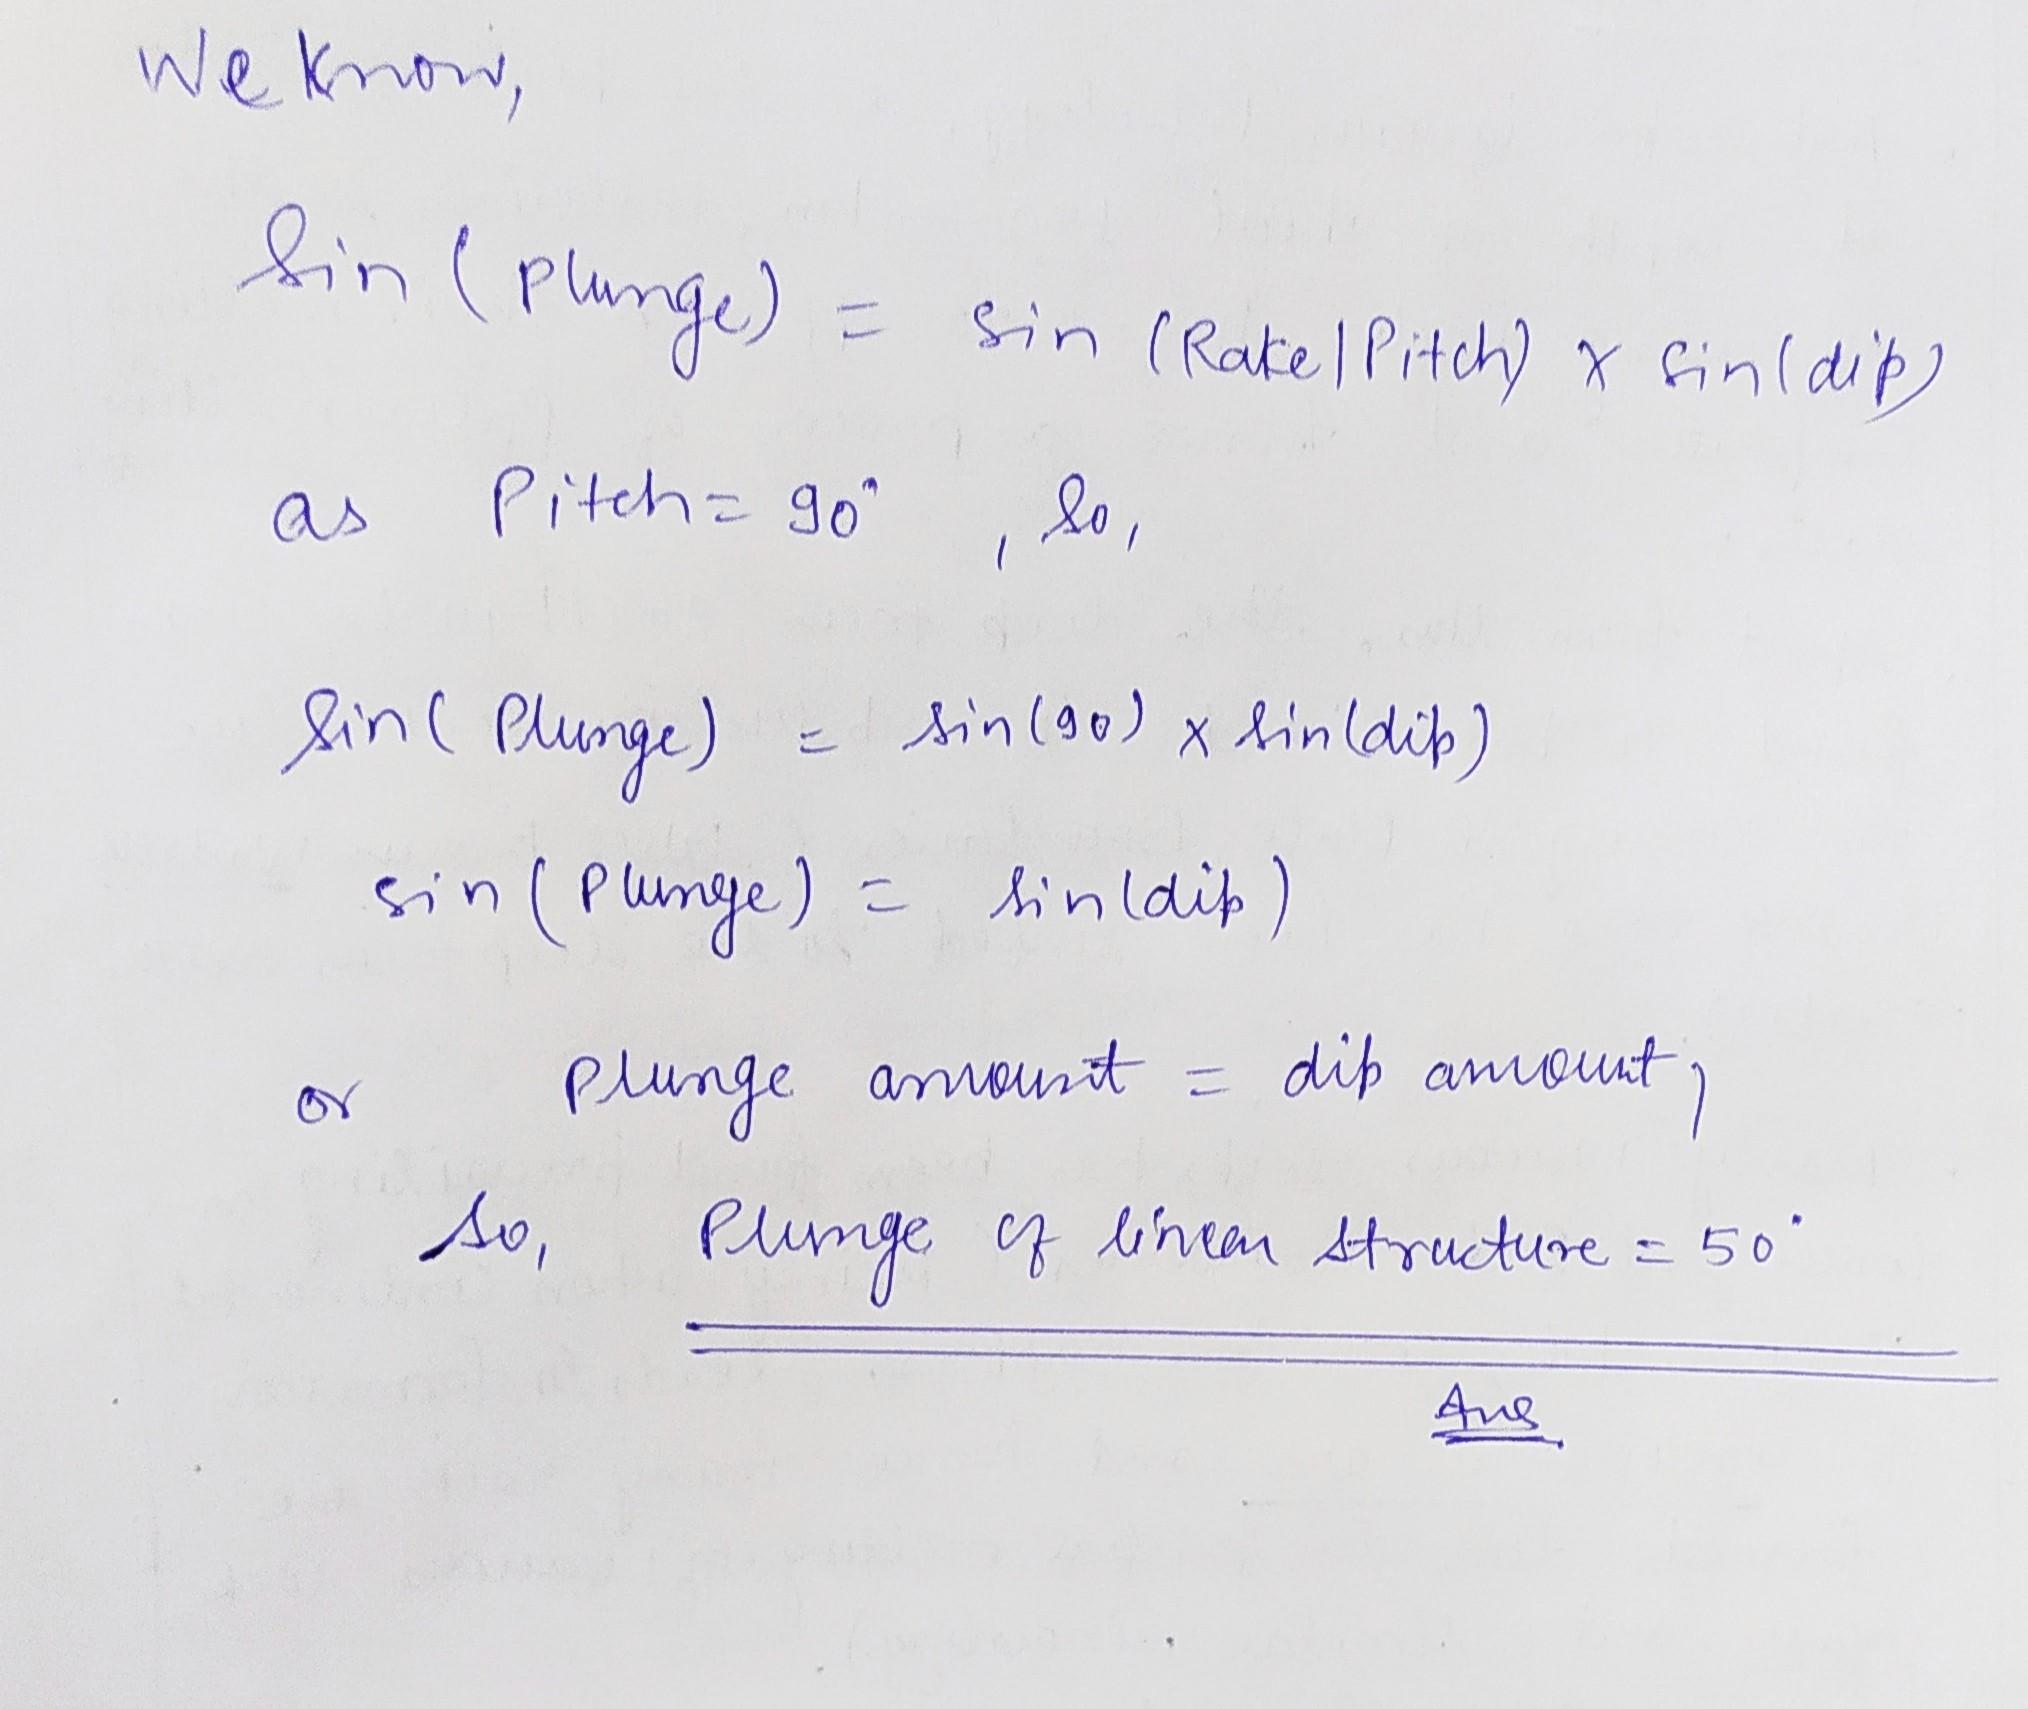 We know,
Sin (Plunge) = sin (Rake/Pitch) x sin(dip)
as Pitch = 90° , So,
Sin( Plunge) = sin(90) x sin(dip)
sin (Plunge) = sin(dip)
or Plunge amount = dip amount,
So, Plunge of linear structure = 50°
Ans